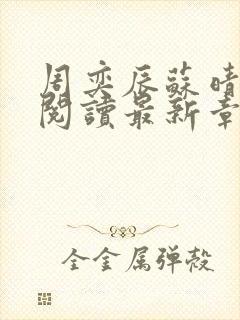 周奕辰蘇晴
閱讀最新章
全金属弹殻